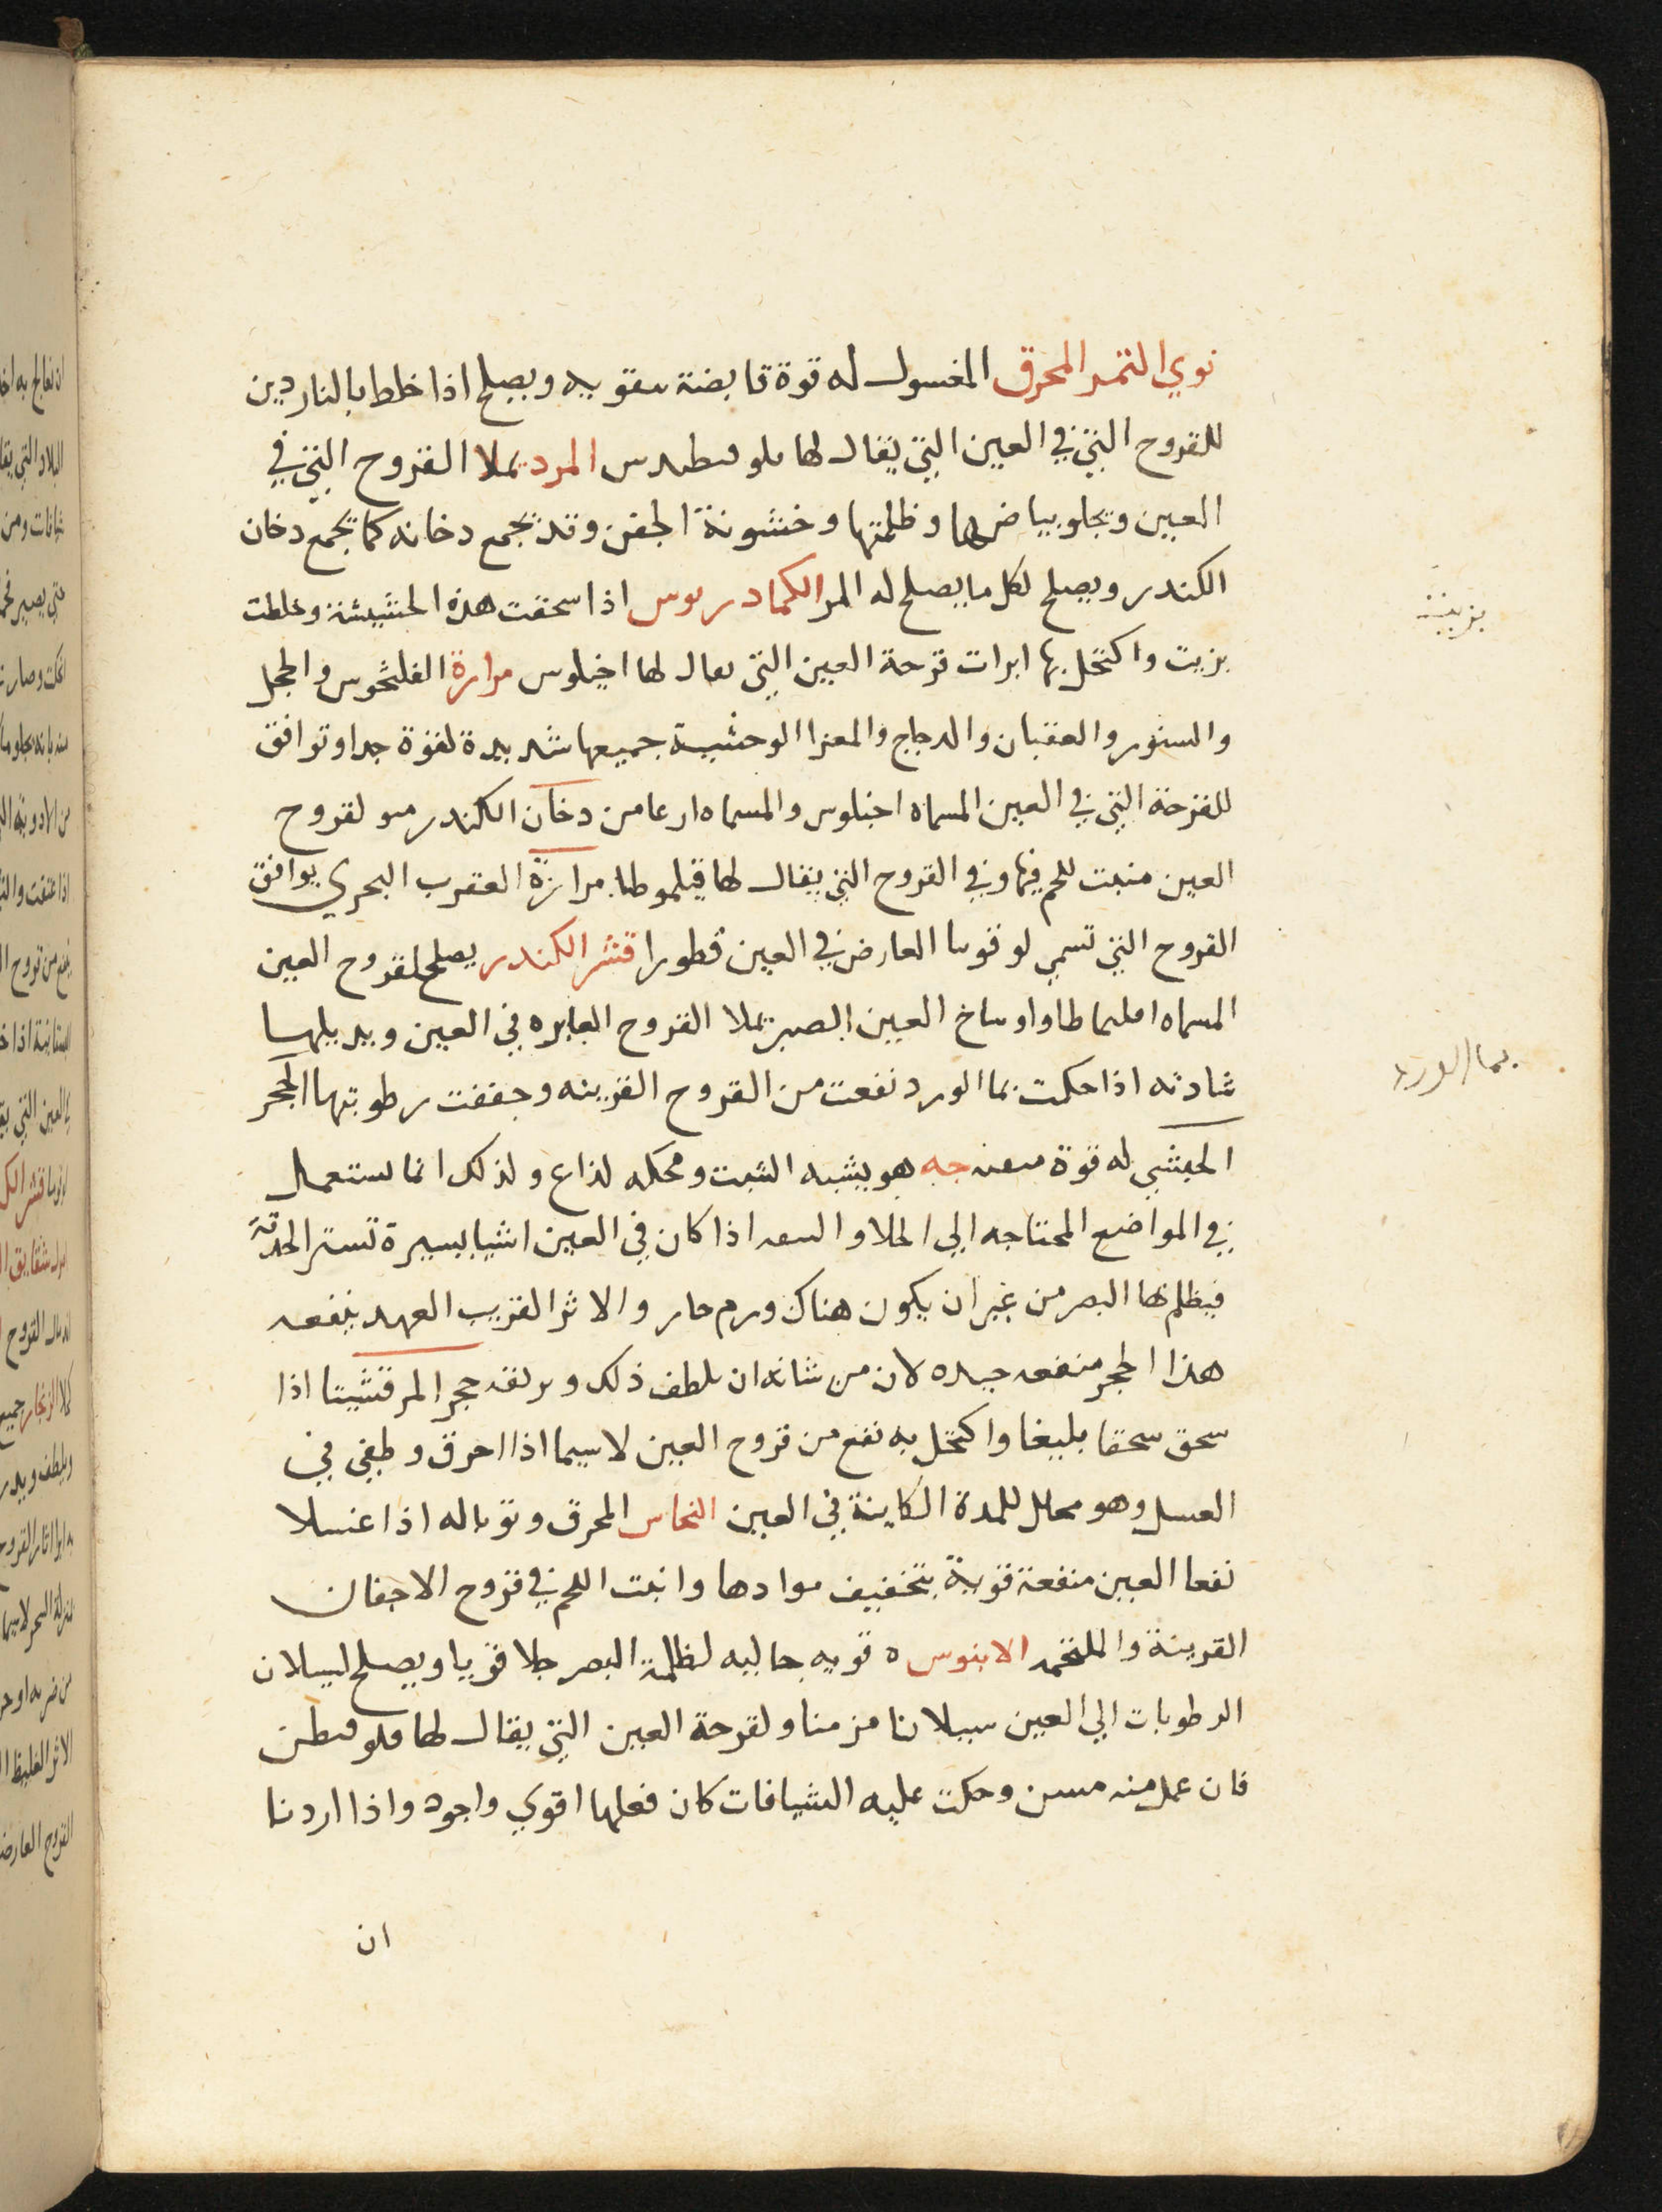 نوي التمر المحرق المغسول له قوة قابضة مقويه ويصلح اذا خلط بالناردين
للقروح التي في العين التي يقال لها المر يملا القروح التي في
العين ويجلو بياضها وظلمتها وخشونة الجفن وقد يجمع دخانه كما يجمع دخان
الكندر ويصلح لكل ما يصلح له المر الكمادريوس اذا سحقت هذه الحشيشة وخلطت
بزيت واكتحل بها ابرات قرحة العين التي يقال لها اخيلوس مرارة والحجل
والسنور والعقبان والدجاج والمعزا الوحشية جميعها شديدة لقوة جدا وتوافق
للقرحة التي في العين المسماة اخيلوس والمسماه ارعامن دخان الكندر لقروح
العين منبت للحم فيها وفي القروح التي يقال لها قيلموطا مرارة العقرب البحري يوافق
القروح التي تسمي لوقوما العارض في العين قطورا قشر الكندر يصلح لقروح العين
المسماه واوساخ العين الصبر يملا القروح الغايره في العين ويدملها
شادنه اذا حكت بما الورد نفعت من القروح القرينه وجففت رطوبتها الحجر
الحبشي له قوة جه هو يشبه الشبت ومحكه لذاع ولذلك انما يستعمل
في المواضع المحتاجه الي الجلا و اذا كان في العين اشيا يسيرة تستر الحدقة
فيظلم لها البصر من غير ان يكون هناك ورم حار والاثر القريب العهد ينفعه
هذا الحجر منفعه جيده لان من شانه ان يلطف ذلك ويرققه حجر المرقشيتا اذا
سحق سحقا بليغا واكتحل به نفع من قروح العين لاسيما اذا احرق وطفي في
العسل وهو محلل للمدة الكاينة في العين النحاس المحرق وتوباله اذا غسلا
نفعا العين منفعة قوية بتخفيف موادها وانبت اللحم في قروح الاجفان
القرينة والملتحمه الابنوس ه قويه جاليه لظلمة البصر جلا قويا ويصلح لسيلان
الرطوبات الي العين سيلانا مزمنا ولقرحة العين التي يقال لها
فان عمل منه مسن وحكت عليه الشيافات كان فعلها اقوي واجود واذا اردنا
ان
بزيت
بما الورد